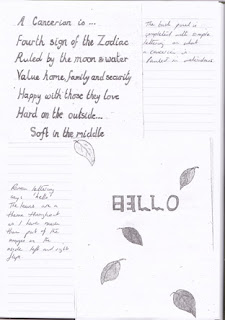 A Cancerian is...
Fourth sign of the Zodiac
Ruled by the moon & water
Value home, family and security
Happy with those they love
Hard on the outside...
Soft in the middle
The back panel is
completed with simple
lettering on what
a cancerian is
Painted in watercolours
HELLO
Roman lettering
says 'hello'
The leaves are a
theme throughout
so I have made
them part of the
images on the
inside left and right
flaps